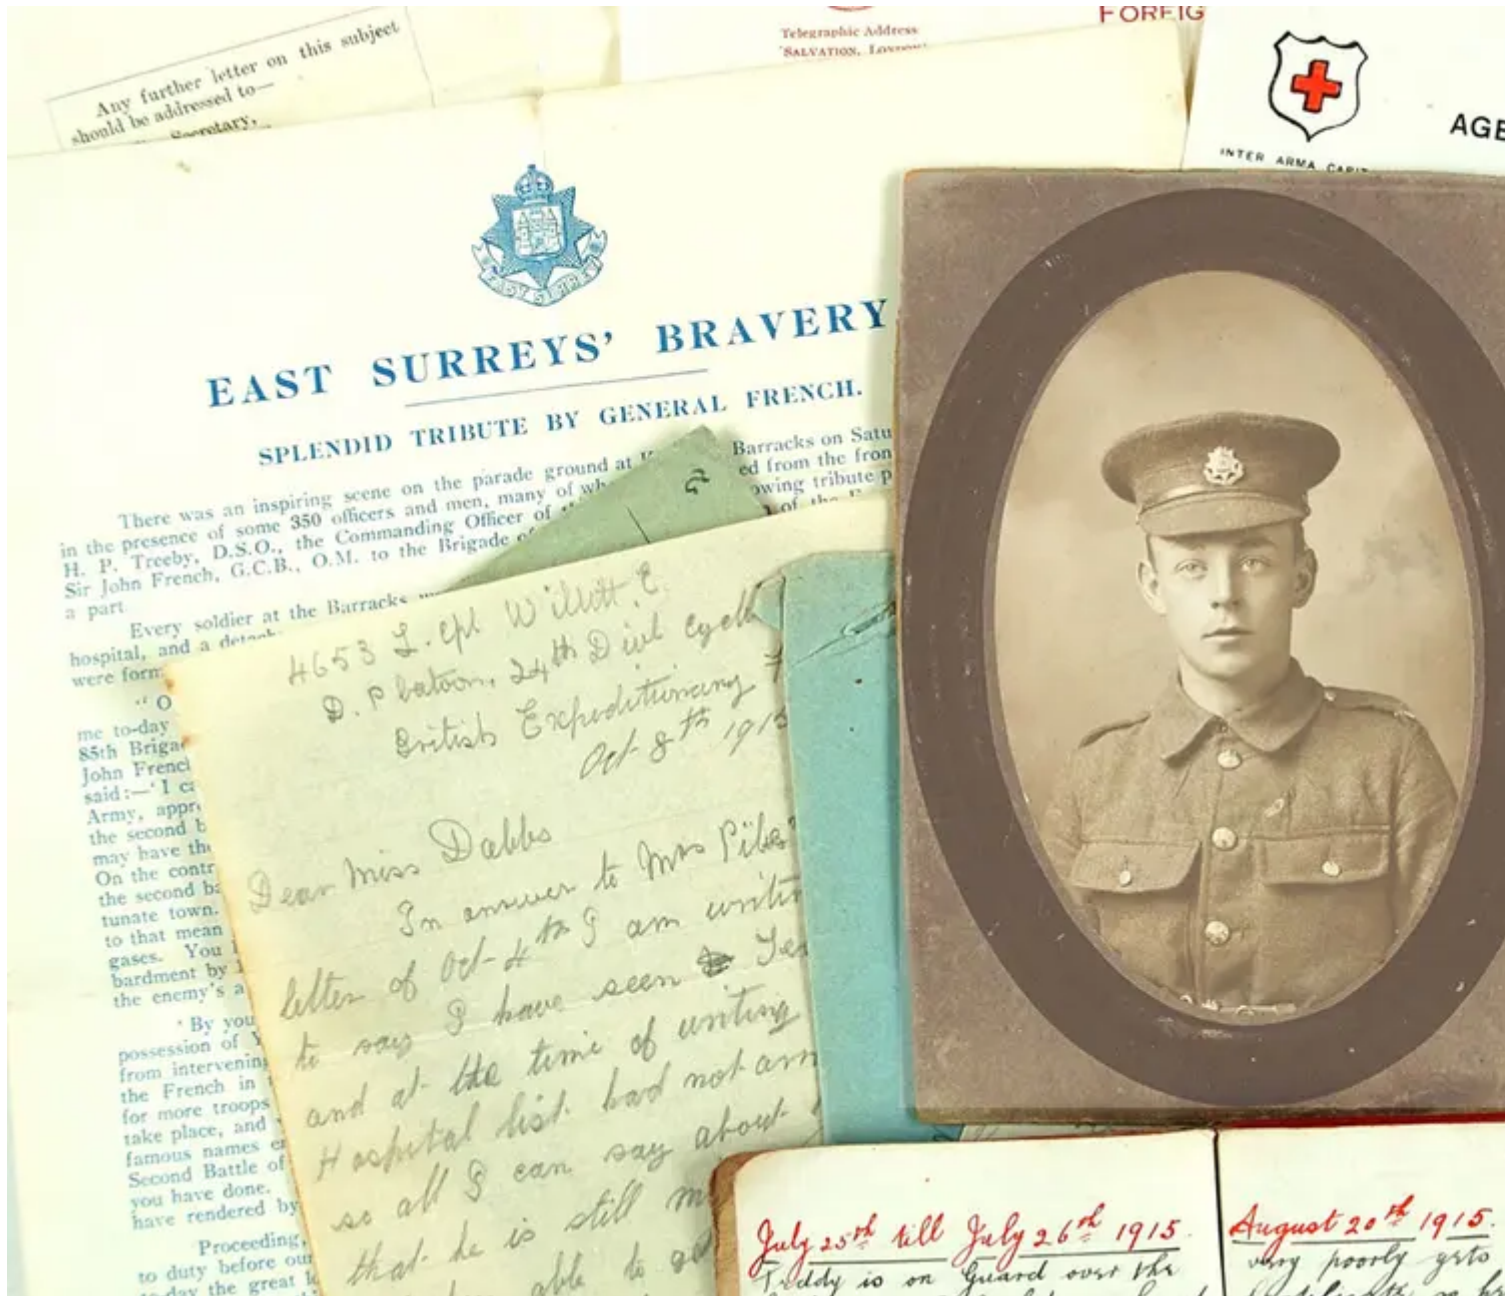 Any further letter on this subject
should be addressed to—
Secretary,
Telegraphic Address
"SALVATION, LONDON"
FOREIG
INTER ARMA CARIT
AGE
EAST SURREY
EAST SURREYS' BRAVERY
SPLENDID TRIBUTE BY GENERAL FRENCH.
There was an inspiring scene on the parade ground at
Barracks on Satu
in the presence of some 350 officers and men, many of wh
ed from the fron
H. P. Treeby, D.S.O., the Commanding Officer of
owing tribute p
Sir John French, G.C.B., O.M. to the Brigade of
of the
a part
Every soldier at the Barracks
hospital, and a detach
were form
" O
me to-day
85th Brigad
John Frencl
said:—' I ca
Army, appr
the second b
may have th
On the contr
the second ba
tunate town.
to that mean
gases. You
bardment by
the enemy's a
' By you
possession of Y
from intervening
the French in
for more troops
take place, and
famous names e
Second Battle of
you have done.
have rendered by
Proceeding,
to duty before our
to-day the great
4653 L. Cpl Willett. E
D. Platoon, 24th Divl Cycli
British Expeditionary F
Oct 8th 1915
Dear Miss Dabbs
In answer to Mrs
letter of Oct 4th I am writin
to say I have seen
and at the time of writing
Hospital list had not arri
so all I can say about
that he is still
able to
July 25th till July 26th 1915.
Teddy is on Guard over the
August 20th 1915.
very poorly